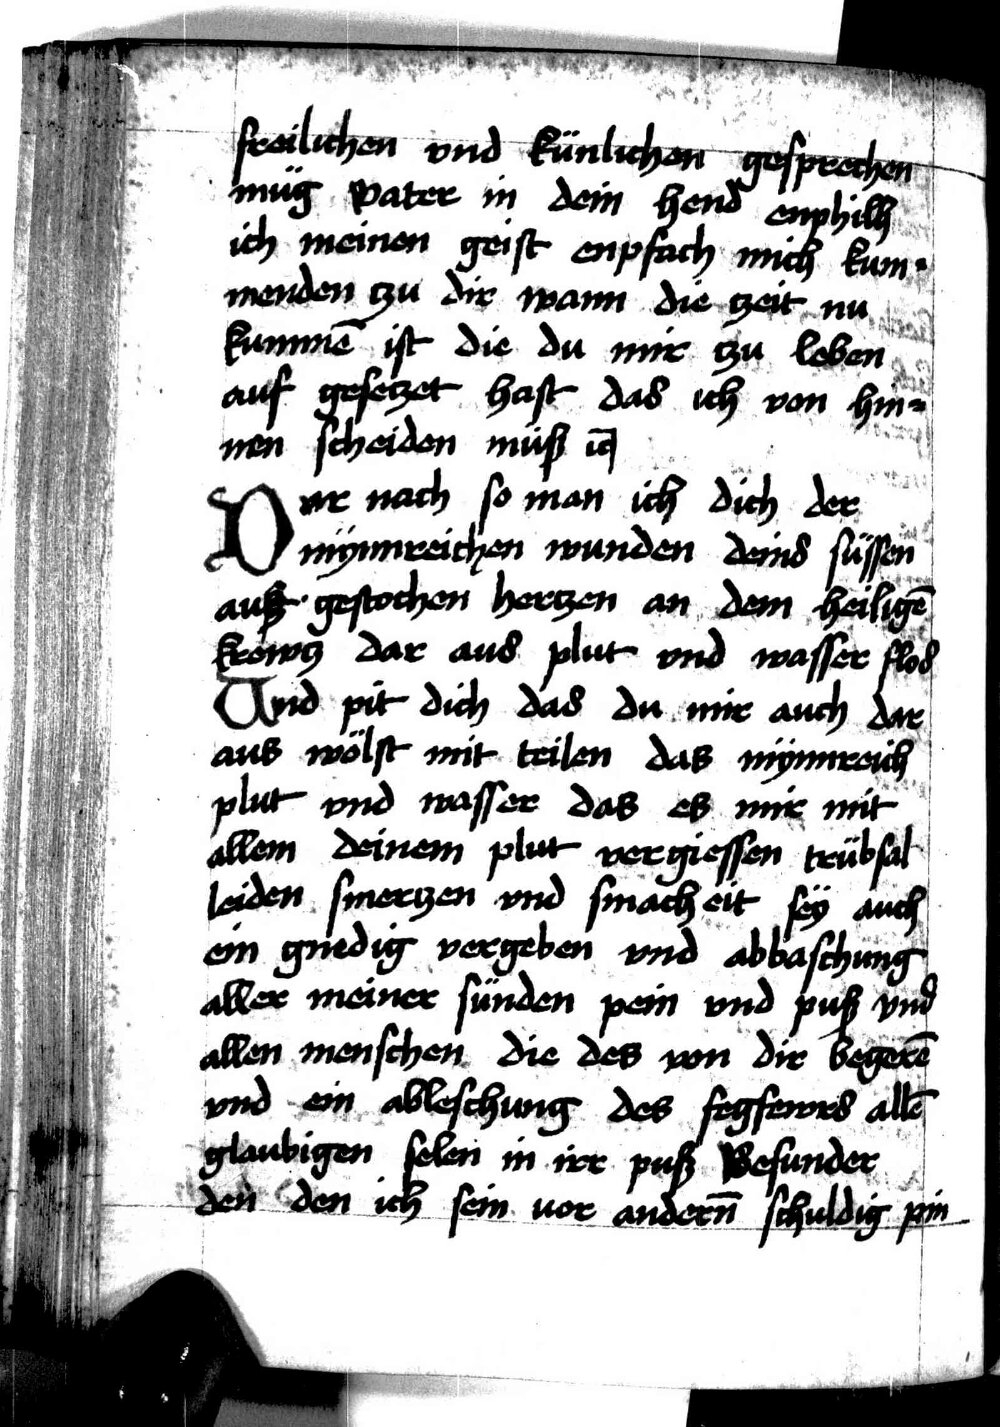 freilichen vnd künlichen gesprechen
müg vater in dein hend enphilh
ich meinen geist enpfach mich kum-
menden tzu dir wann die tzeit nu
kummē ist die du mir tzu leben
auf gesetzet hast das ich von hin-
nen scheiden muß
Dar nach so man ich dich der
mÿnnreichen wunden deins süssen
auß gestochen hertzen an dem heiligē
krewtz dar aus plut vnd wasser flos
Und pit dich das du mir auch dar
aus wölst mit teilen das mÿnnreich
plut vnd wasser das es mir mit
allem deinem plut vergiessen trübsal
leiden smertzen vnd smacheit sëy auch
ein gnedig vergeben vnd abbaschung
aller meiner sünden pein vnd puß vnd
allen menschen die des von dir begerē
vnd ein ableschung des fegfewrs allē
glaubigen selen in irr puß Besunder
den den ich sein vor andern̄ schuldig pin